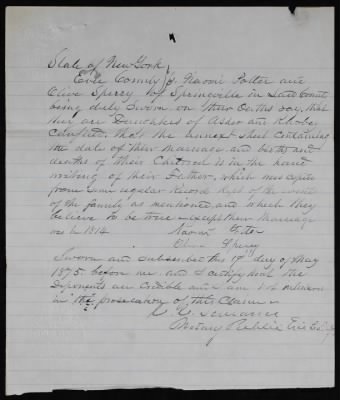 State of New York
Erie County } Naomi Porter and
Olive Sperry of Springville in Said County
being duly Sworn on their Oaths say, that
they are Daughters of and Rhoda
that the annexed Sheet containing
the date of their Marriage and births and
deaths of their Children is in the hand
writing of their Father, which was copied
from regular Records kept of the events
of the family as mentioned, and which they
believe to be true except their Marriage
was in 1814
Porter
Olive Sperry
Sworn and Subscribed this 19 day of May
1875 before me and I certify that the
Deponents are Credible and I am not interested
in the prosecution of this Claim
Notary Public Erie Co.